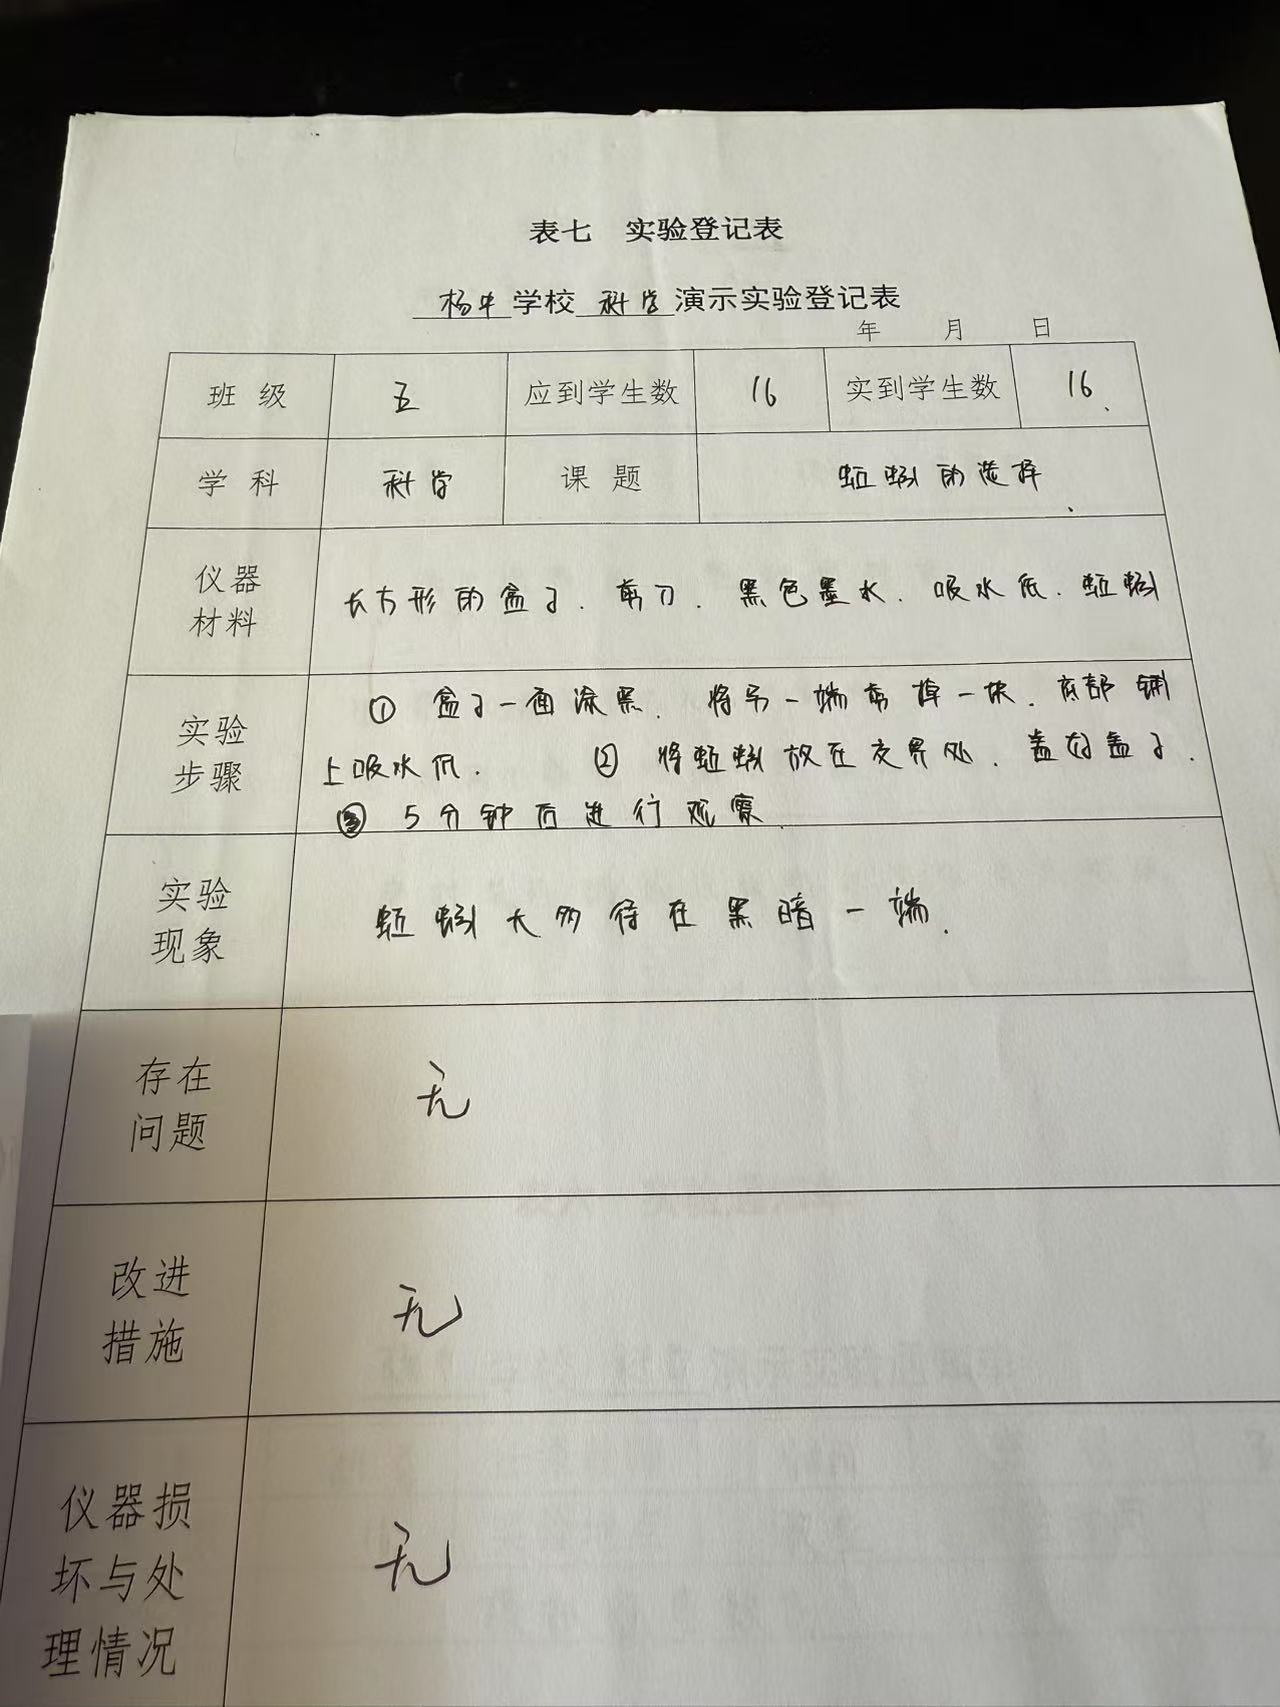 表七 实验登记表
杨中学校 科学 演示实验登记表
年 月 日
班级 五 应到学生数 16 实到学生数 16
学科 科学 课题 蚯蚓的选择
仪器
材料
长方形的盒子、剪刀、黑色墨水、吸水纸、蚯蚓
实验
步骤
① 盒子一面涂黑、将另一端剪掉一块、底部铺
上吸水纸. ② 将蚯蚓放在交界处、盖好盖子.
③ 5分钟后进行观察.
实验
现象
蚯蚓大多待在黑暗一端.
存在
问题
无
改进
措施
无
仪器损
坏与处
理情况
无